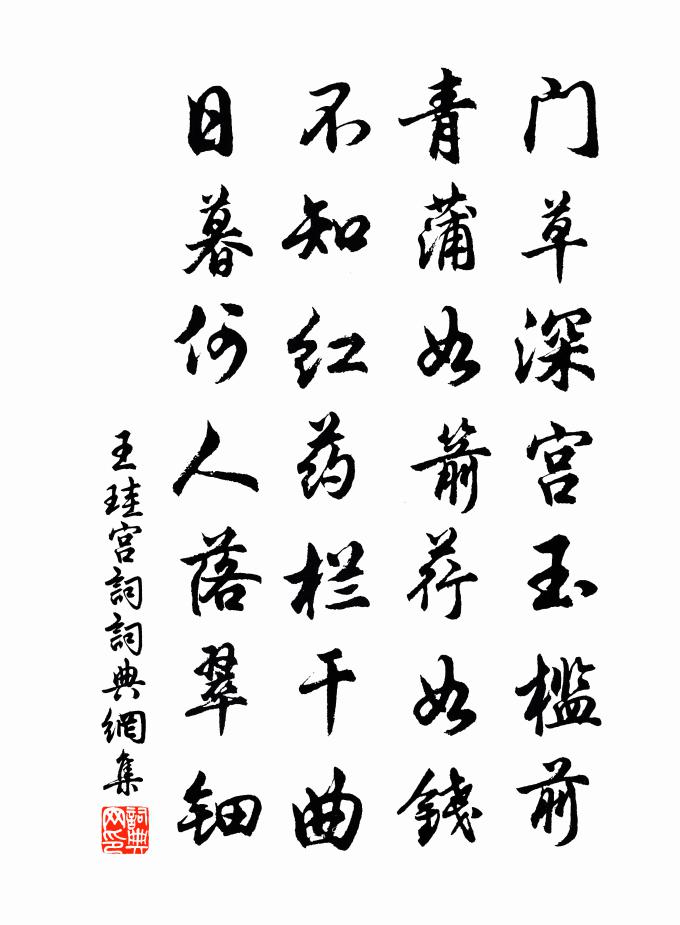 门草深宫玉槛前
青蒲如箭荇如錢
不知红药栏干曲
日暮何人落翠钿
王珪宫詞詞典網集
詞典网印